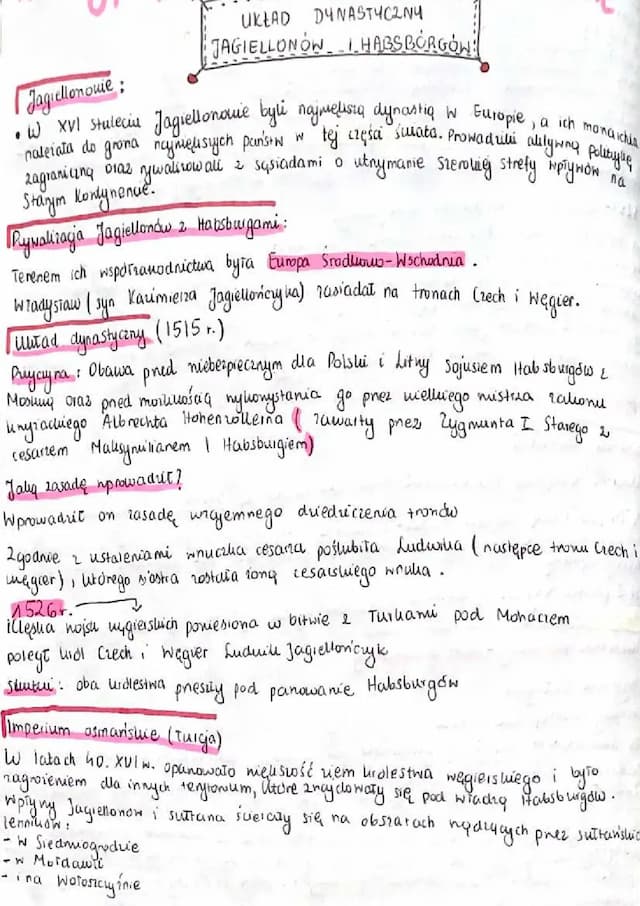 UKŁAD DYNASTYCZNY
JAGIELLONÓW I HABSBURGÓW
Jagiellonowie:
• W XVI stuleciu Jagiellonowie byli największą dynastią w Europie, a ich monarchia
należała do grona największych państw w tej części świata. Prowadzili aktywną politykę
zagraniczną oraz rywalizowali z sąsiadami o utrzymanie szerokiej strefy wpływów na
Starym Kontynencie.
Rywalizacja Jagiellonów z Habsburgami:
Terenem ich współzawodnictwa była Europa Środkowo-Wschodnia.
Władysław (syn Kazimierza Jagiellończyka) zasiadał na tronach Czech i Węgier.
Układ dynastyczny (1515 r.)
Przyczyna: Obawa przed niebezpiecznym dla Polski i Litwy sojuszem Habsburgów z
Moskwą oraz przed możliwością wykorzystania go przez wielkiego mistrza zakonu
krzyżackiego Albrechta Hohenzollerna (zawarty przez Zygmunta I Starego z
cesarzem Maksymilianem I Habsburgiem)
Jaką zasadę wprowadził?
Wprowadził on zasadę wzajemnego dziedziczenia tronów
Zgodnie z ustaleniami wnuczka cesarza poślubiła Ludwika (następce tronu Czech i
Węgier), którego siostra została żoną cesarskiego wnuka.
1526r.
Klęska wojsk węgierskich poniesiona w bitwie z Turkami pod Mohaczem
poległ król Czech i Węgier Ludwik Jagiellończyk
Skutki: oba królestwa przeszły pod panowanie Habsburgów
Imperium osmańskie (Turcja)
W latach 40. XVI w. opanowało większość ziem królestwa węgierskiego i było
zagrożeniem dla innych terytorium, które znajdowały się pod władzą Habsburgów.
Wpływy Jagiellonów i sułtana ścierały się na obszarach rządzących przez sułtańskic
lenników:
- w Siedmiogrodzie
- w Mołdawii
- i na Wołoszczyźnie